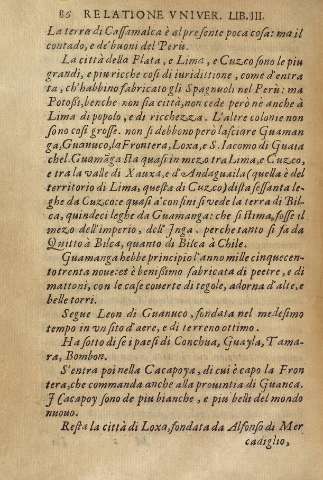 86 RELATIONE VNIVER. LIB. III.
La terra di Cassamalca è al presente poca cosa: ma il
contado, e de' buoni del Perù.
La città della Plata, e Lima, e Cuzco sono le piu
grandi, e piu ricche cosi di iuriditione, come d'entra
ta, ch'habbino fabricato gli Spagnuoli nel Perù: ma
Potossi, benche non sia città, non cede però nè anche à
Lima di popolo, e di ricchezza. L'altre colonie non
sono cosi grosse. non si debbono però lasciare Guaman
ga, Guanuco, la Frontera, Loxa, e S. Iacomo di Guaia
chel. Guamãga sta quasi in mezo tra Lima, e Cuzco,
e tra la valle di Xauxa, e d'Andaguaila (quella è del
territorio di Lima, questa di Cuzco) dista sessanta le
ghe da Cuzco: e quasi a' confini si vede la terra di Bil-
ca, quindeci leghe da Guamanga: che si stima, fosse il
mezo dell'imperio, dell' Inga. perche tanto si fa da
Quitto à Bilca, quanto di Bilca à Chile.
Guamanga hebbe principio l'anno mille cinquecen-
to trenta noue: et è benissimo fabricata di peetre, e di
mattoni, con le case couerte di tegole, adorna d'alte, e
belle torri.
Segue Leon di Guanuco, fondata nel medesimo
tempo in vn sito d'aere, e di terreno ottimo.
Ha sotto di se i paesi di Conchua, Guayla, Tama-
ra, Bombon.
S'entra poi nella Cacapoya, di cui è capo la Fron
tera, che commanda anche alla prouintia di Guanca.
I Cacapoy sono de piu bianche, e piu belli del mondo
nuouo.
Resta la città di Loxa, fondata da Alfonso di Mer
cadiglio,